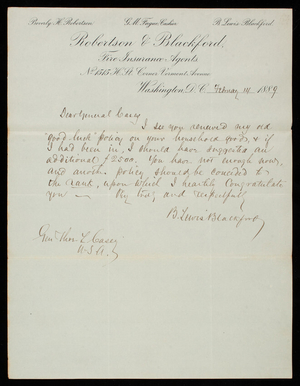 Beverly H. Robertson. G. M. Fague, Cashier B. Lewis Blackford.
Robertson & Blackford,
Fire Insurance Agents
No. 1515 H. St. Corner Vermont Avenue
Washington, D. C. February 14 1889
Dear General Casey
I see you renewed my old
"good luck" policy on your household goods, & if
I had been in, I should have suggested an
additional $2500. You have not enough now,
and another policy should be conceded to
the rank, upon which I heartily Congratulate
you — Very truly and respectfully
B. Lewis Blackford
Genl Thos. L. Casey
U.S.A.